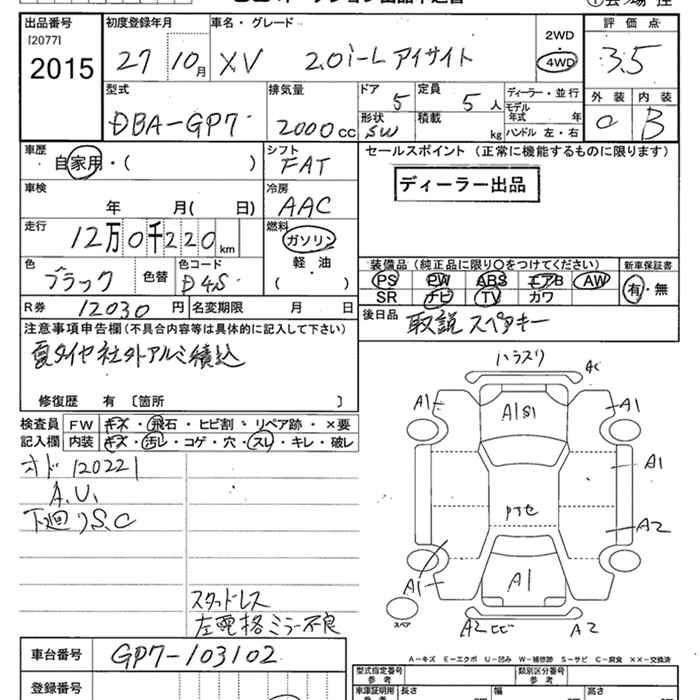 出品番号 初度登録年月 車名・グレード 2WD 評価点
[2077]
2015 27 10月 XV 2.0i-L アイサイト 4WD 3.5
型式 排気量 ドア 定員 ディーラー・並行 外装 内装
DBA-GP7 2000cc 5 5人 モデル年式 年 C B
形状 積載 ハンドル 左・右
SW kg
車歴 シフト セールスポイント (正常に機能するものに限ります)
自家用・( ) FAT
ディーラー出品
車検 冷房
年 月( 日) AAC
走行 燃料
12万0千220km ガソリン
軽・油
( )
色 色替 色コード 装備品 (純正品に限り○をつけてください) 新車保証書
ブラック D4S PS PW ABS エアB AW 有・無
SR ナビ TV カワ
R券 12030円 名変期限 月 日 後日品 取説 スペアキー
注意事項申告欄(不具合内容等は具体的に記入して下さい)
夏タイヤ社外アルミ積込
修復歴 有 〔箇所 〕
検査員 FW キズ・飛石・ヒビ割・リペア跡・×要
記入欄 内装 キズ・汚レ・コゲ・穴・スレ・キレ・破レ
オド 120221
A.U.
下廻りS.C
スタッドレス
左電格ミラー不良
車台番号 GP7-103102
登録番号
A1
A1
A1
A2
A1
A1
A2 ヒビ A2
スペア
A-キズ E-エクボ U-凹み W-補修跡 S-サビ C-腐食 ××-交換済
型式指定番号 類別区分番号
参考 参考
車庫証明用 長さ 幅 高さ